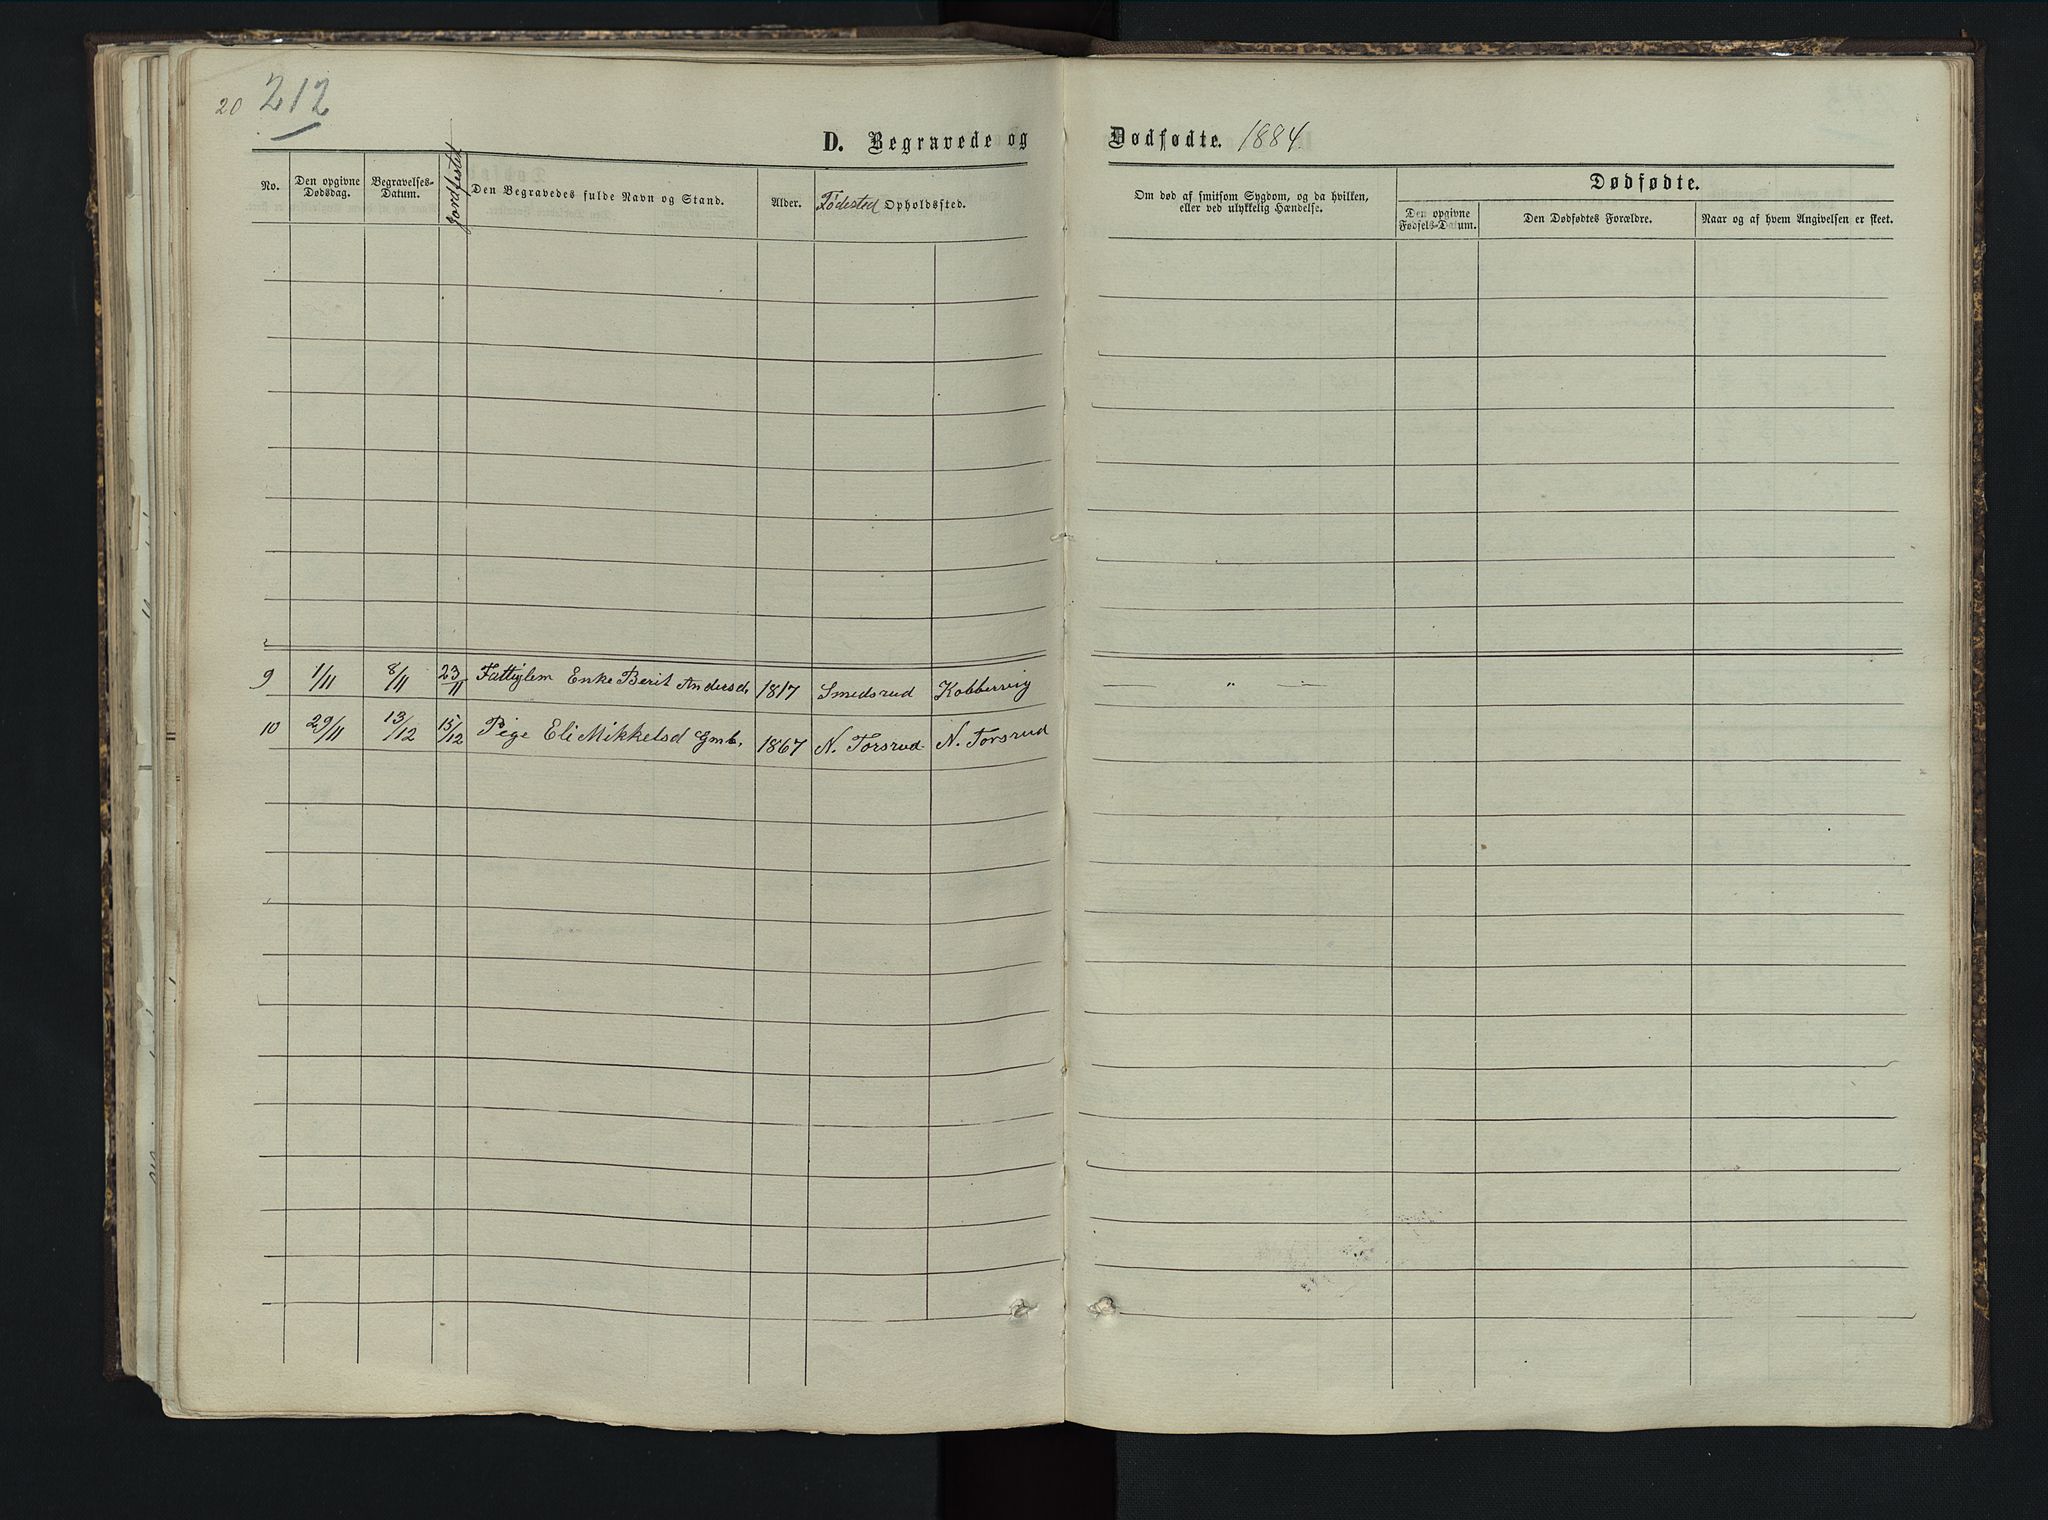 20 212
D. Begravede og Dødfødte. 1884
No.
Den opgivne Dødsdag.
Begravelses-Datum.
Jordfæsted
Den Begravedes fulde Navn og Stand.
Alder.
Fødested
Opholdssted.
Om død af smitsom Sygdom, og da hvilken, eller ved ulykkelig Hændelse.
Dødfødte.
Den opgivne Fødsels-Datum.
Den Dødfødtes Forældre.
Naar og af hvem Angivelsen er skeet.
9 1/11 8/11 23/11 Fattiglem Enke Berit Andersd, 1817 Smedsrud Kobbervig — „ —
10 29/11 13/12 15/12 Pige Eli Mikkelsd Gmb, 1867 N. Torsrud N. Torsrud